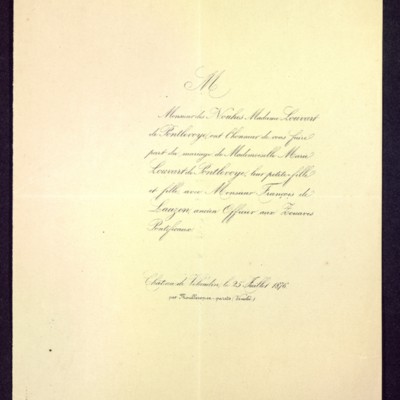 M
Monsieur de Nouhes, Madame Louvart
de Pontlevoye, ont l'honneur de vous faire
part du mariage de Mademoiselle Marie
Louvart de Pontlevoye, leur petite-fille
et fille, avec Monsieur François de
Lauzon, ancien Officier aux Zouaves
Pontificaux.
Château de le 25 Juillet 1876
par (Vendée)